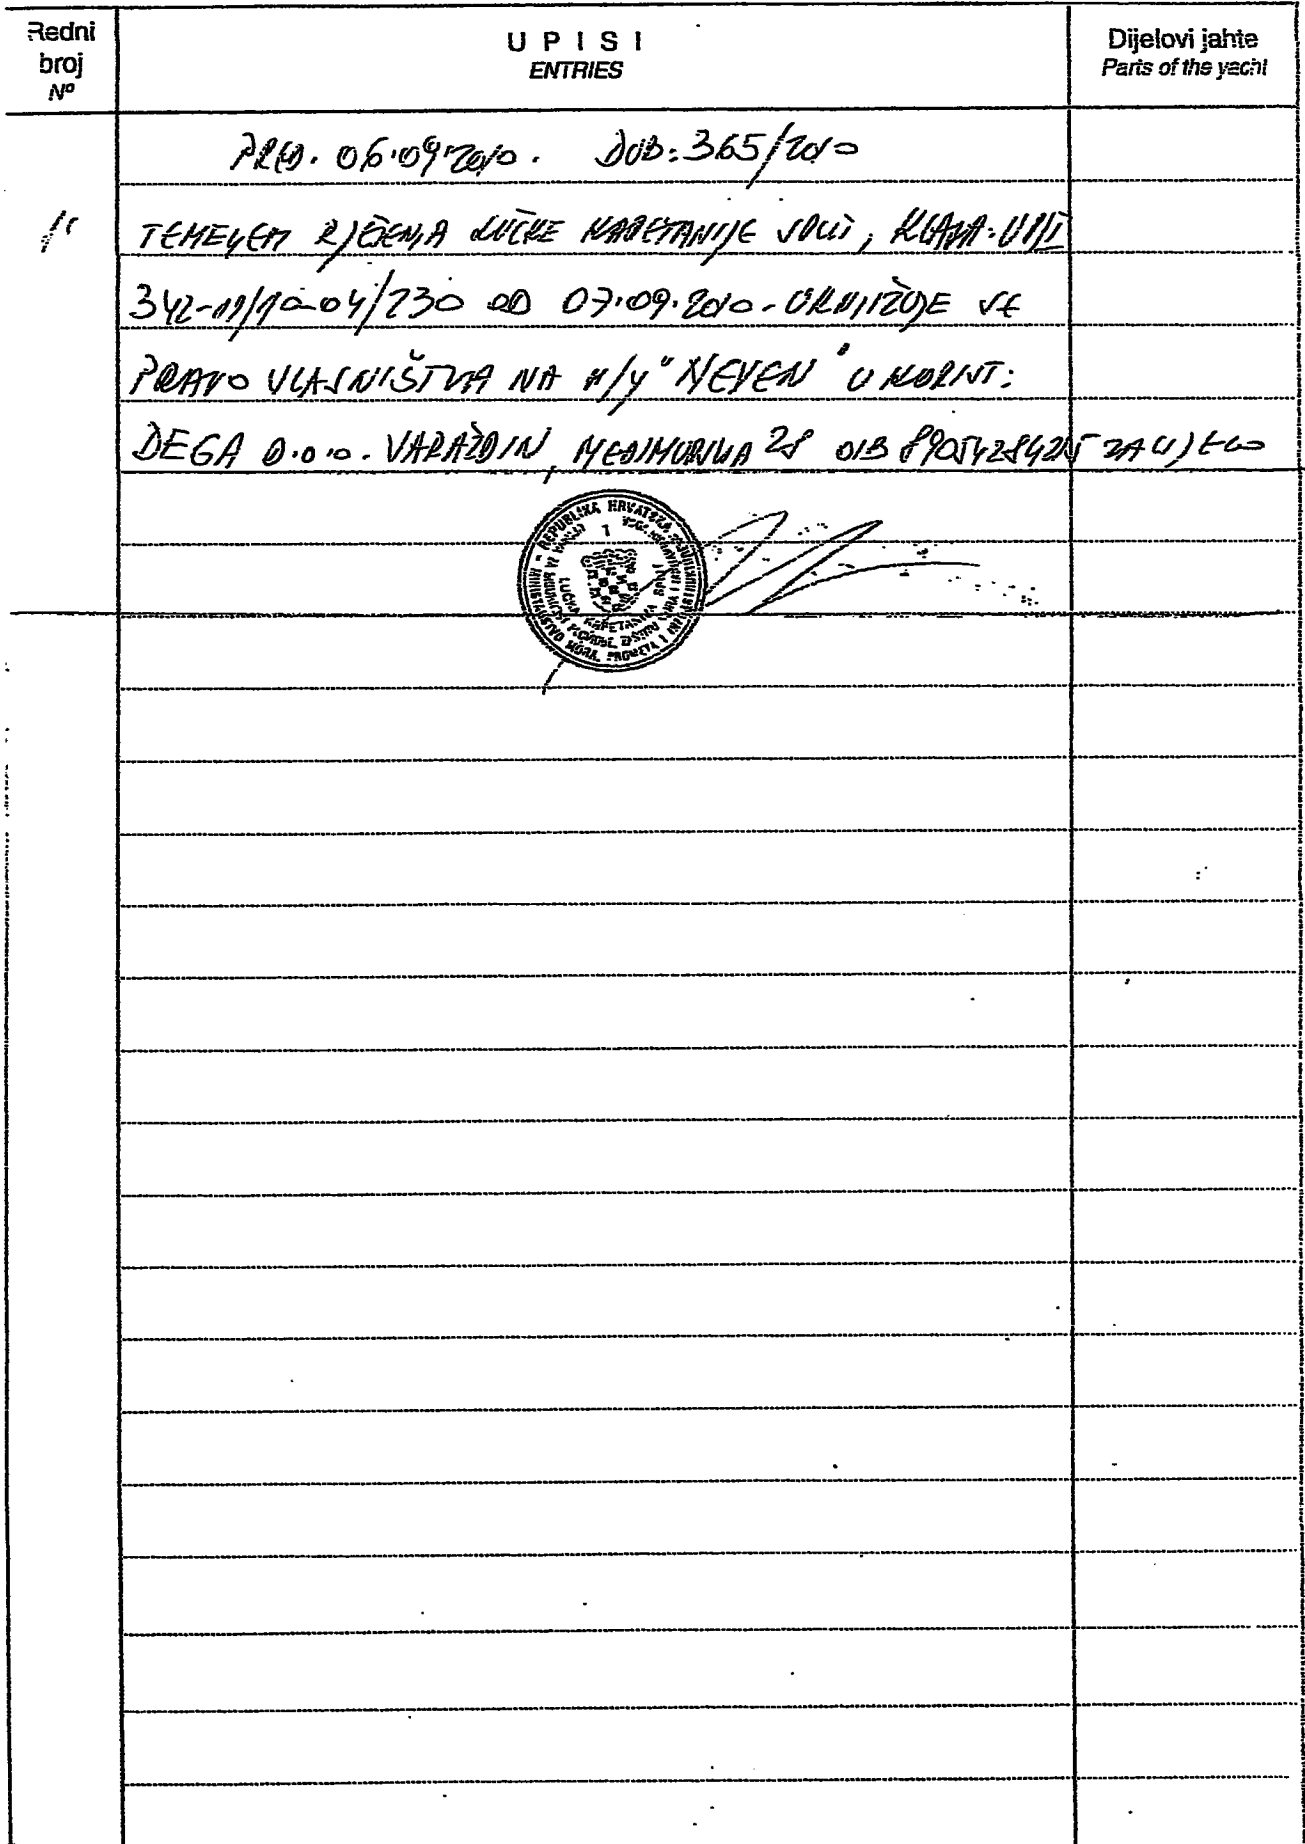 Redni
broj
Nº
U P I S I
ENTRIES
Dijelovi jahte
Parts of the yacht
PRED. 06.09.2010. DOB: 365/2010
1. TEMELJEM RJEŠENJA LUČKE KAPETANIJE SPLIT, KLASA: UP/I
342-11/10-04/230 OD 07.09.2010. UKNJIŽUJE SE
PRAVO VLASNIŠTVA NA M/Y "NEVEN" U KORIST:
DEGA D.O.O. VARAŽDIN, MEĐIMURSKA 28 OIB ZA CIJELO
REPUBLIKA HRVATSKA
MINISTARSTVO MORA, PROMETA I
LUČKA KAPETANIJA SPLIT